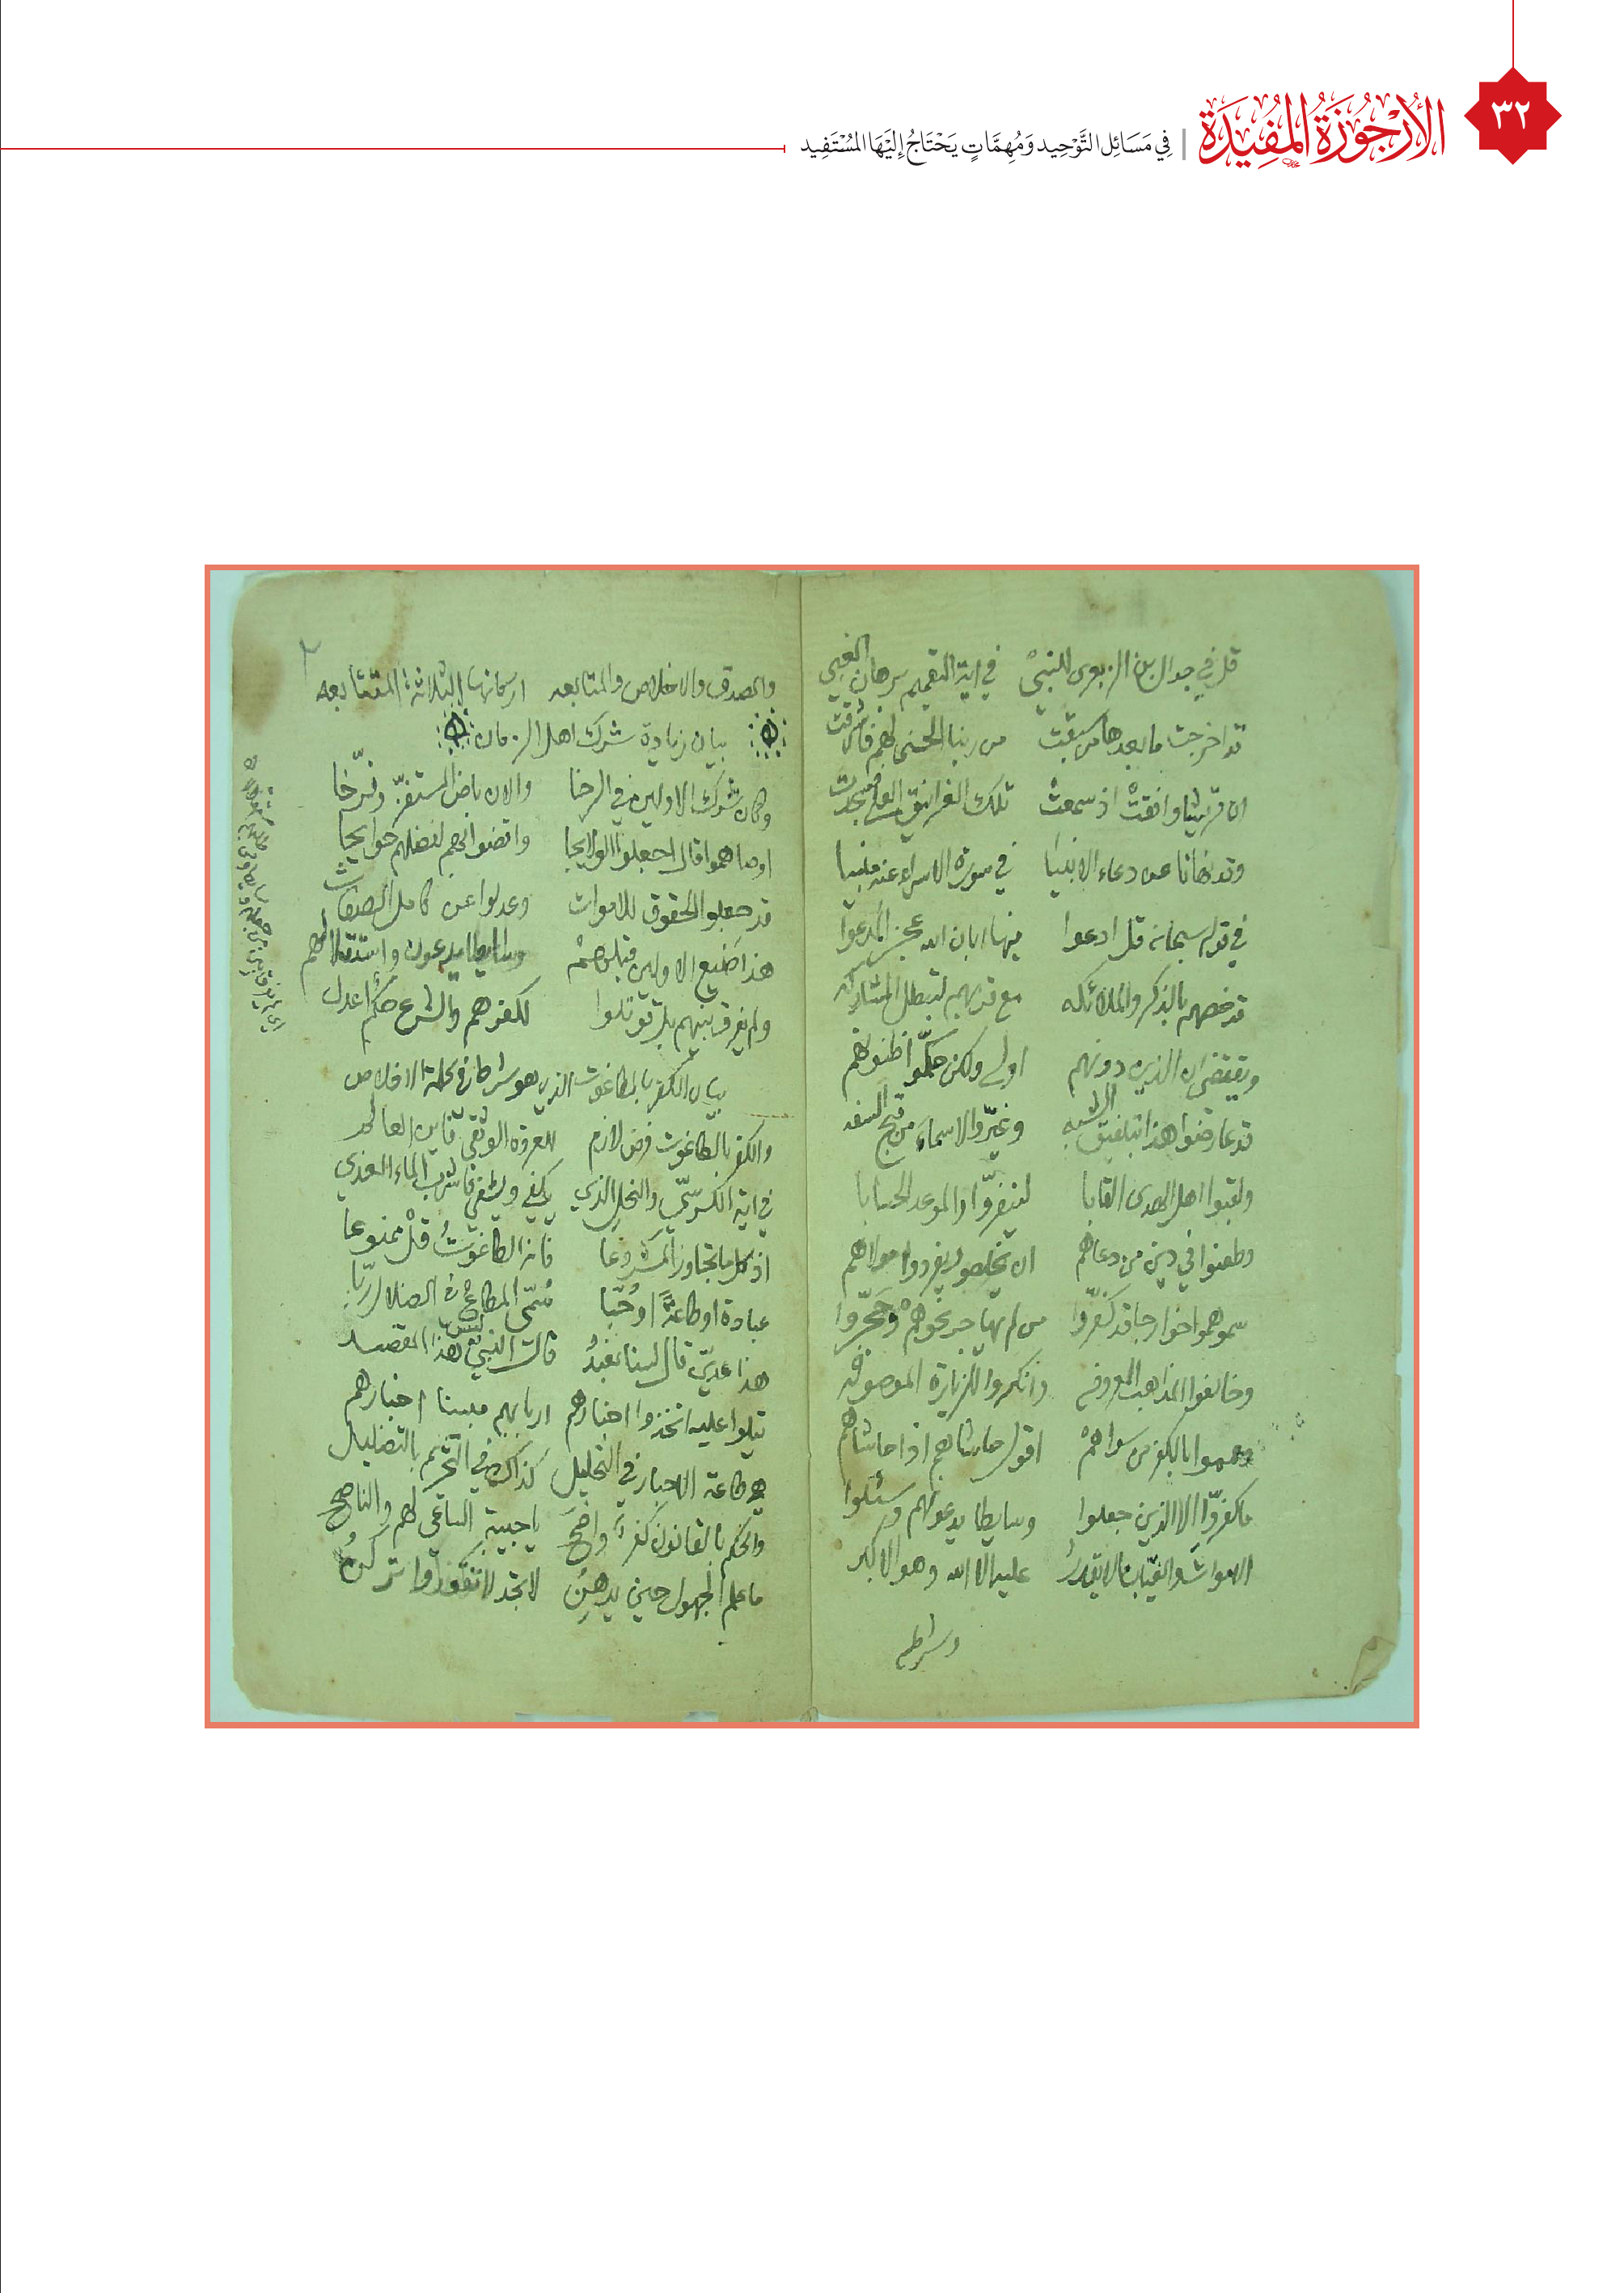 ٣٢
الأُرْجُوزَةُ المُفِيدَة | فِي مَسَائِلِ التَّوْحِيد وَمُهِمَّاتٍ يَحْتَاجُ إِلَيْهَا المُسْتَفِيد
قل في جدال بن الزبعرى للنبي في اية التعميم برهان الغبي
قد اخرجت ما بعدها من سبقت من ربنا الحسنى لهم
ان قريشا وافقت اذ سمعت تلك الغرانيق العلى فسجدت
وقد نهانا عن دعاء الانبيا في سورة الاسراء عنه منبيا
في قوله سبحانه قل ادعوا فيها ابان الله عجز المدعوا
قد خصهم بالذكر والملائكه مع قربهم لتبطل المشاركه
ويقتضي ان الذين دونهم اولى ولكن حكموا ظنونهم
قد عارضوا هذا بتلفيق الشبه وغيروا الاسماء من قبح السفه
ولقبوا اهل الهدى القابا لينفروا والموعد الحسابا
وطعنوا في دين من دعاهم ان يخلصوا يفردوا مولاهم
سموهموا خوارجا قد كفروا من لم يهاجر نحوهم وحجروا
وخالفوا المذاهب المعروفه وانكروا للزيارة الموصوفه
بالكفر من سواهم اقول حاشاهم اذا حاشاهم
ما كفروا الا الذين جعلوا وسايطا يدعونهم وسئلوا
الاموات والغياب ما لا يقدر عليه الا الله وهو الاكبر
وشرطه
٢
والصدق والاخلاص والمتابعه اركانها الثلاثة المتتابعه
بيان زيادة شرك اهل الزمان
وكان شرك الاولين في الرخا والان باض المستفز وفرخا
اوصاهموا قال اجعلوا الولايجا واقضوا لهم لفضلهم حوايجا
قد جعلوا الحقوق للاموات وعدلوا عن كامل الصفات
هذا صنيع الاولين قبلهم
ولم يفرق بينهم بل قوتلوا لكفرهم والشرع حكم اعدل
بيان الكفر بالطاغوت الذي هو شرط في كلمة الاخلاص
والكفر بالطاغوت فرض لازم للعروة الوثقى
في اية الكرسي والنحل الذي يكفي ويشفي فاشرب الماء الغذي
اذ كل ما تجاوز المشروعا فانه الطاغوت قل ممنوعا
عبادة او طاعة او حبا سمي المطاع في الضلال ربا
هذا عدي قال لسنا نعبد قال النبي ليس هذا المقصد
يتلوا عليه اتخذوا احبارهم اربابهم مبينا اخبارهم
هو طاعة الاحبار في التحليل كذاك في التحريم بالتضليل
والحكم بالقانون كفر واضح
ما علم الجهول حين يدهن